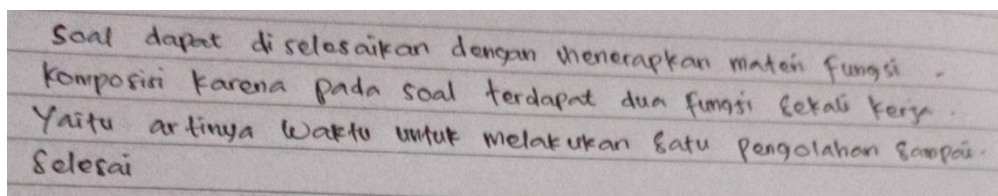 Soal dapat di selesaikan dengan menerapkan materi fungsi -
komposisi karena pada soal terdapat dua fungsi sekali kerja.
Yaitu artinya waktu untuk melakukan satu pengolahan sampai.
Selesai